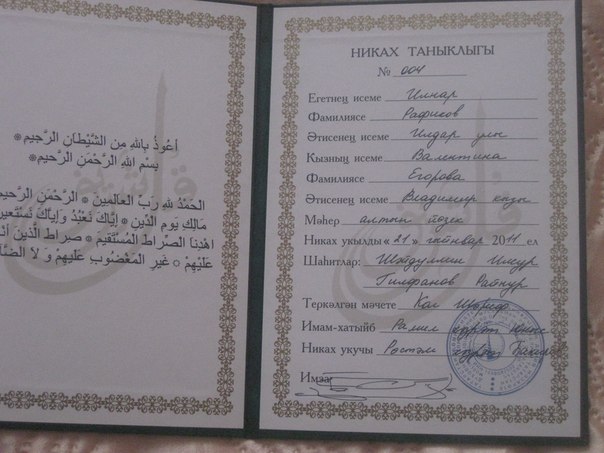 أعوذ بالله من الشيطان الرجيم *
بسم الله الرحمن الرحيم *
الحمد لله رب العالمين * الرحمن الرحيم
مالك يوم الدين * إياك نعبد وإياك نستعين
اهدنا الصراط المستقيم * صراط الذين
عليهم * غير المغضوب عليهم و لا
НИКАХ ТАНЫКЛЫГЫ
№ 004
Егетнең исеме Илнар
Фамилиясе Рафиков
Әтисенең исеме Илдар улы
Кызның исеме Валентина
Фамилиясе Егорова
Әтисенең исеме Владимир кызы
Мәһер алтын йөзек
Никах укылды «21» гыйнвар 2011 ел
Шаһитлар:
Гилфанов Ратнур
Теркәлгән мәчете Кол Шәриф
Имам-хатыйб Рамил хәзрәт Юныс
Никах укучы Рөстәм хәзрәт
Имза